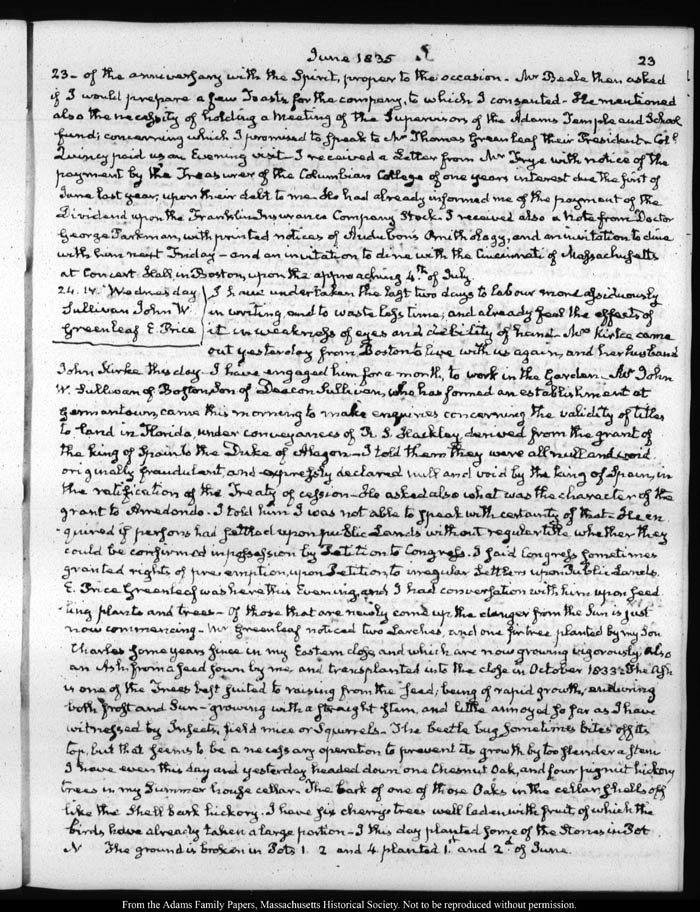 June 1835
23
23 - of the anniversary with the Spirit, proper to the occasion - Mr Beale then asked
if I would prepare a few Toasts for the company, to which I consented - He mentioned
also the necessity of holding a Meeting of the Supervisors of the Adams Temple and School
fund; concerning which I promised to speak to Mr Thomas Greenleaf their President - Coll
Quincy paid us an Evening visit - I received a Letter from Mr Frye with notice of the
payment by the Treasurer of the Columbian College of one years interest due the first of
June last year, upon their debt to me. He had already informed me of the payment of the
Dividend upon the Franklin Insurance Company Stock - I received also a Note from Doctor
George Parkman, with printed notices of Audubon's Ornithology, and an invitation to dine
with him next Friday - and an invitation to dine with the Cincinnati of Massachusetts
at Concert Hall in Boston, upon the approaching 4th of July
24. IV. Wednesday
Sullivan John W
Greenleaf E. Price
I have undertaken the last two days to labour more assiduously
in writing, and to waste less time; and already feel the effects of
it in weakness of eyes and debility of hand - Mrs Kirke came
out yesterday from Boston to live with us again, and her husband
John Kirke this day - I have engaged him for a month, to work in the Garden. Mr John
W. Sullivan of Boston, Son of Deacon Sullivan, who has formed an establishment at
Germantown, came this morning to make enquiries concerning the validity of titles
to land in Florida, under conveyances of R. S. Hackley derived from the grant of
the king of Spain to the Duke of Alagon - I told them they were all null and void
originally fraudulent and expressly declared null and void by the king of Spain, in
the ratification of the Treaty of cession - He asked also what was the character of the
grant to Arredondo - I told him I was not able to speak with certainty of that - He en
quired if persons had settled upon public Lands without regular title whether they
could be confirmed in possession by Petition to Congress. I said Congress sometimes
granted rights of pre emption, upon Petition to irregular Settlers upon Public Lands.
E. Price Greenleaf was here this Evening, and I had conversation with him upon seed
ling plants and trees - Of those that are newly come up the danger from the Sun is just
now commencing - Mr Greenleaf noticed two Larches, and one fir tree planted by my Son
Charles some years since in my Eastern close and which are now growing vigorously; also
an Ash from a seed sown by me and transplanted into the close in October 1833. The Ash
is one of the Trees best suited to raising from the seed, being of rapid growth, enduring
both frost and Sun - growing with a straight stem, and little annoyed so far as I have
witnessed by Insects, field mice or Squirrels - The beetle bug sometimes bites off its
top, but that seems to be a necessary operation to prevent its growth by too slender a stem
I have even this day and yesterday headed down one Chesnut Oak, and four pignut hickory
trees in my Summer house cellar. The bark of one of those Oaks in the cellar shells off
like the shell bark hickory. I have six cherry trees well laden with fruit of which the
birds have already taken a large portion - I this day planted some of the Stones in Pot
N The ground is broken in Pots 1 2 and 4 planted 1st and 2d of June.
From the Adams Family Papers, Massachusetts Historical Society. Not to be reproduced without permission.